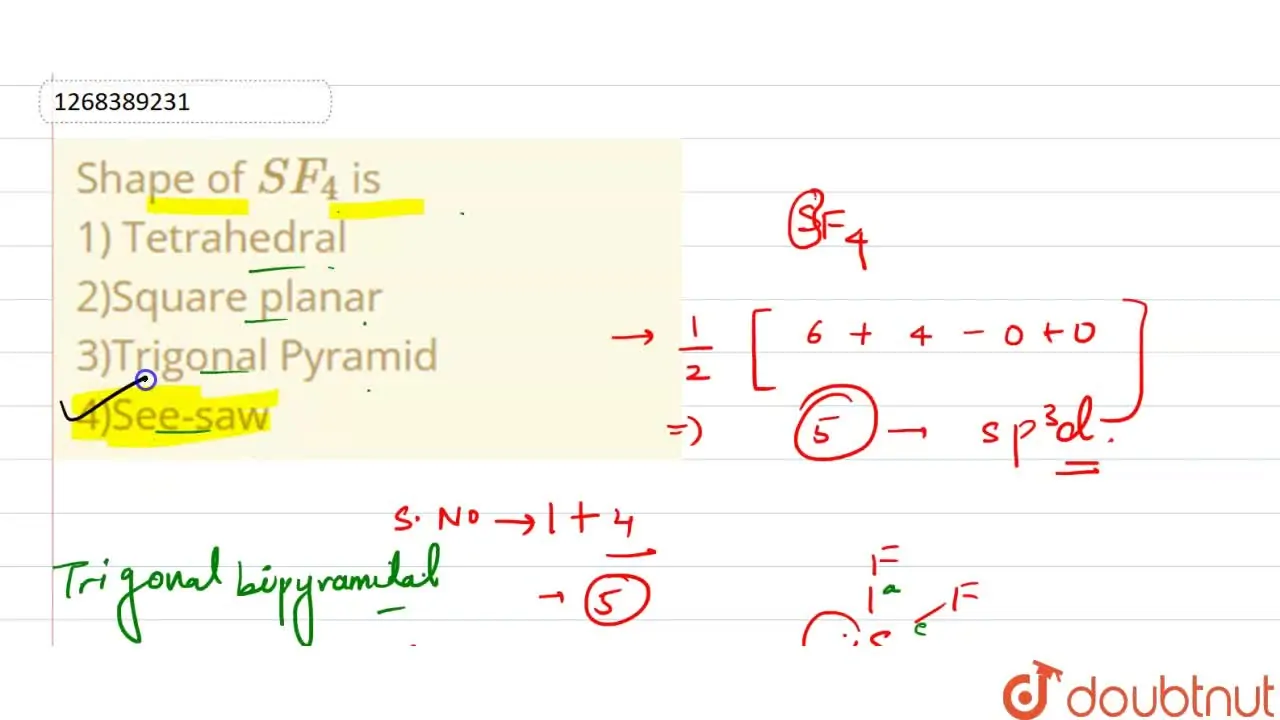 1268389231
Shape of SF₄ is
1) Tetrahedral
2)Square planar
3)Trigonal Pyramid
4)See-saw
SF₄
→ 1/2 [ 6 + 4 - 0 + 0 ]
=) 5 → sp³d.
S. No → 1 + 4
→ 5
Trigonal bipyramidal
F
a
F
e
: S
doubtnut